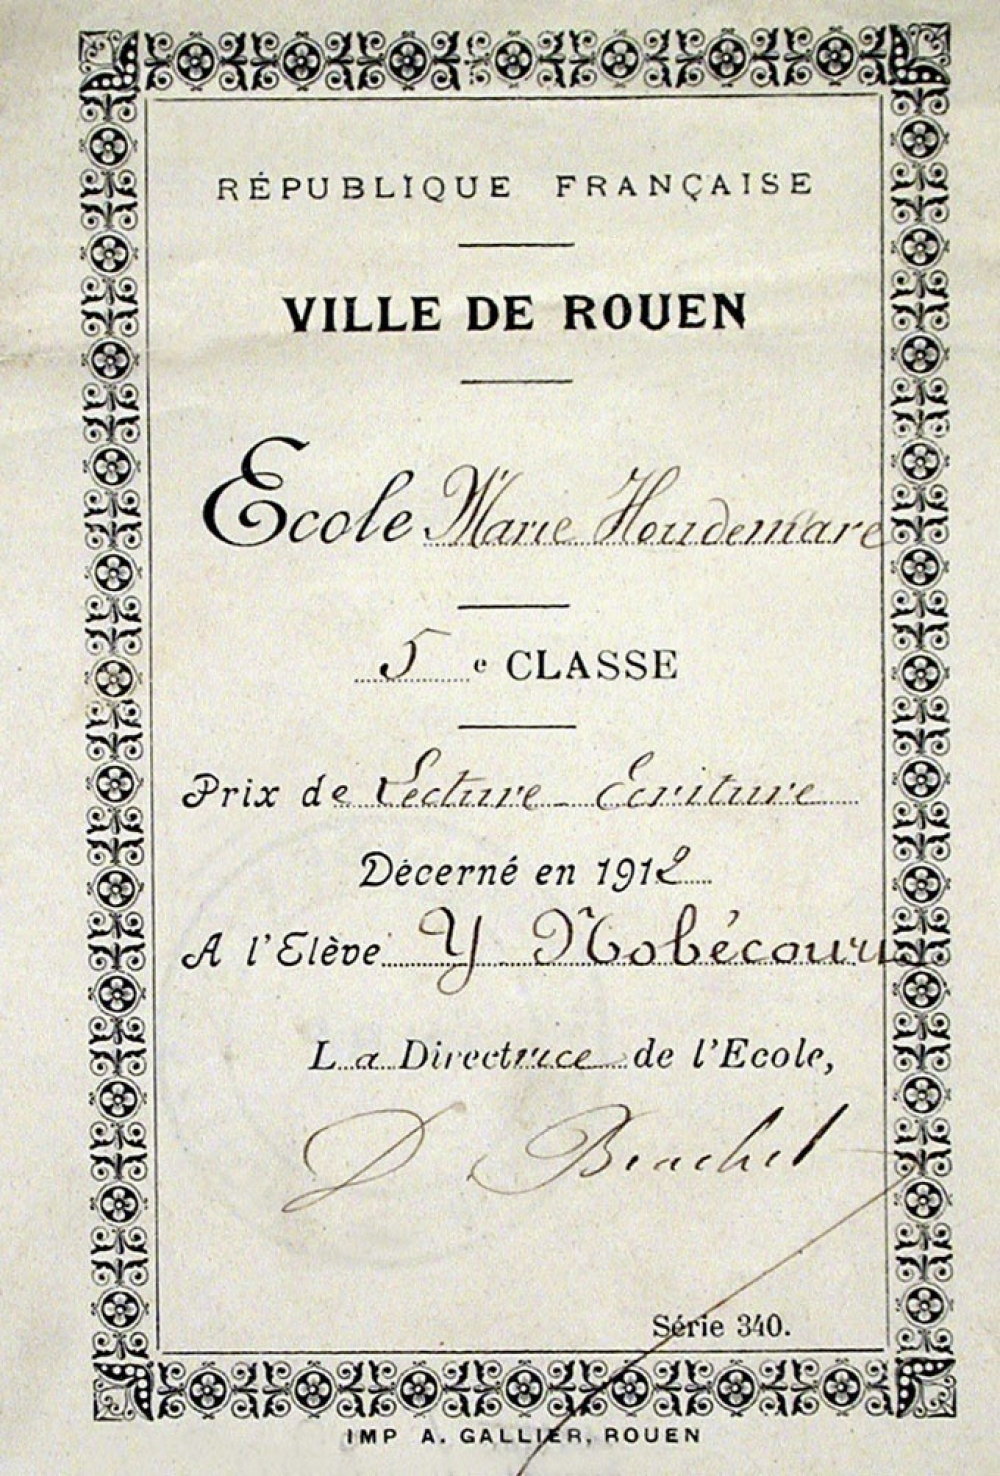 RÉPUBLIQUE FRANÇAISE
VILLE DE ROUEN
Ecole Marie Houdemare
5e CLASSE
Prix de Lecture - Ecriture
Décerné en 1912
A l'Elève Y Nobécourt
La Directrice de l'Ecole,
D
Série 340.
IMP A. GALLIER, ROUEN